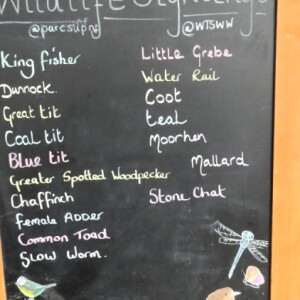 Wildlife Sightings
@parcsup
@WTSWW
King fisher
Dunnock.
Great tit
Coal tit
Blue tit
Greater Spotted Woodpecker
Chaffinch
Female ADDER
Common Toad
Slow Worm.
Little Grebe
Water Rail
Coot
teal
Moorhen
Mallard
Stone Chat